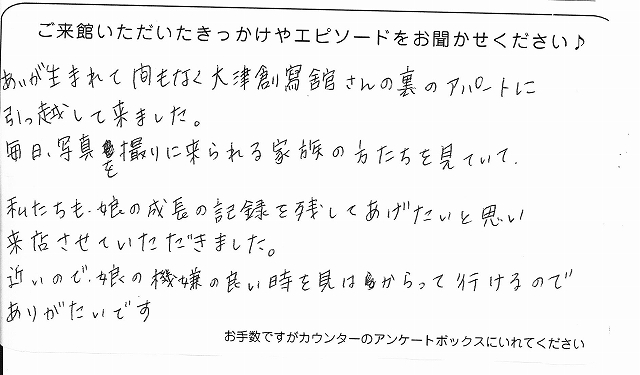 ご来館いただいたきっかけやエピソードをお聞かせください♪
あいが生まれて間もなく大津創寫舘さんの裏のアパートに
引っ越して来ました。
毎日、写真を撮りに来られる家族の方たちを見ていて、
私たちも、娘の成長の記録を残してあげたいと思い
来店させていただきました。
近いので、娘の機嫌の良い時を見はからって行けるので
ありがたいです
お手数ですがカウンターのアンケートボックスにいれてください